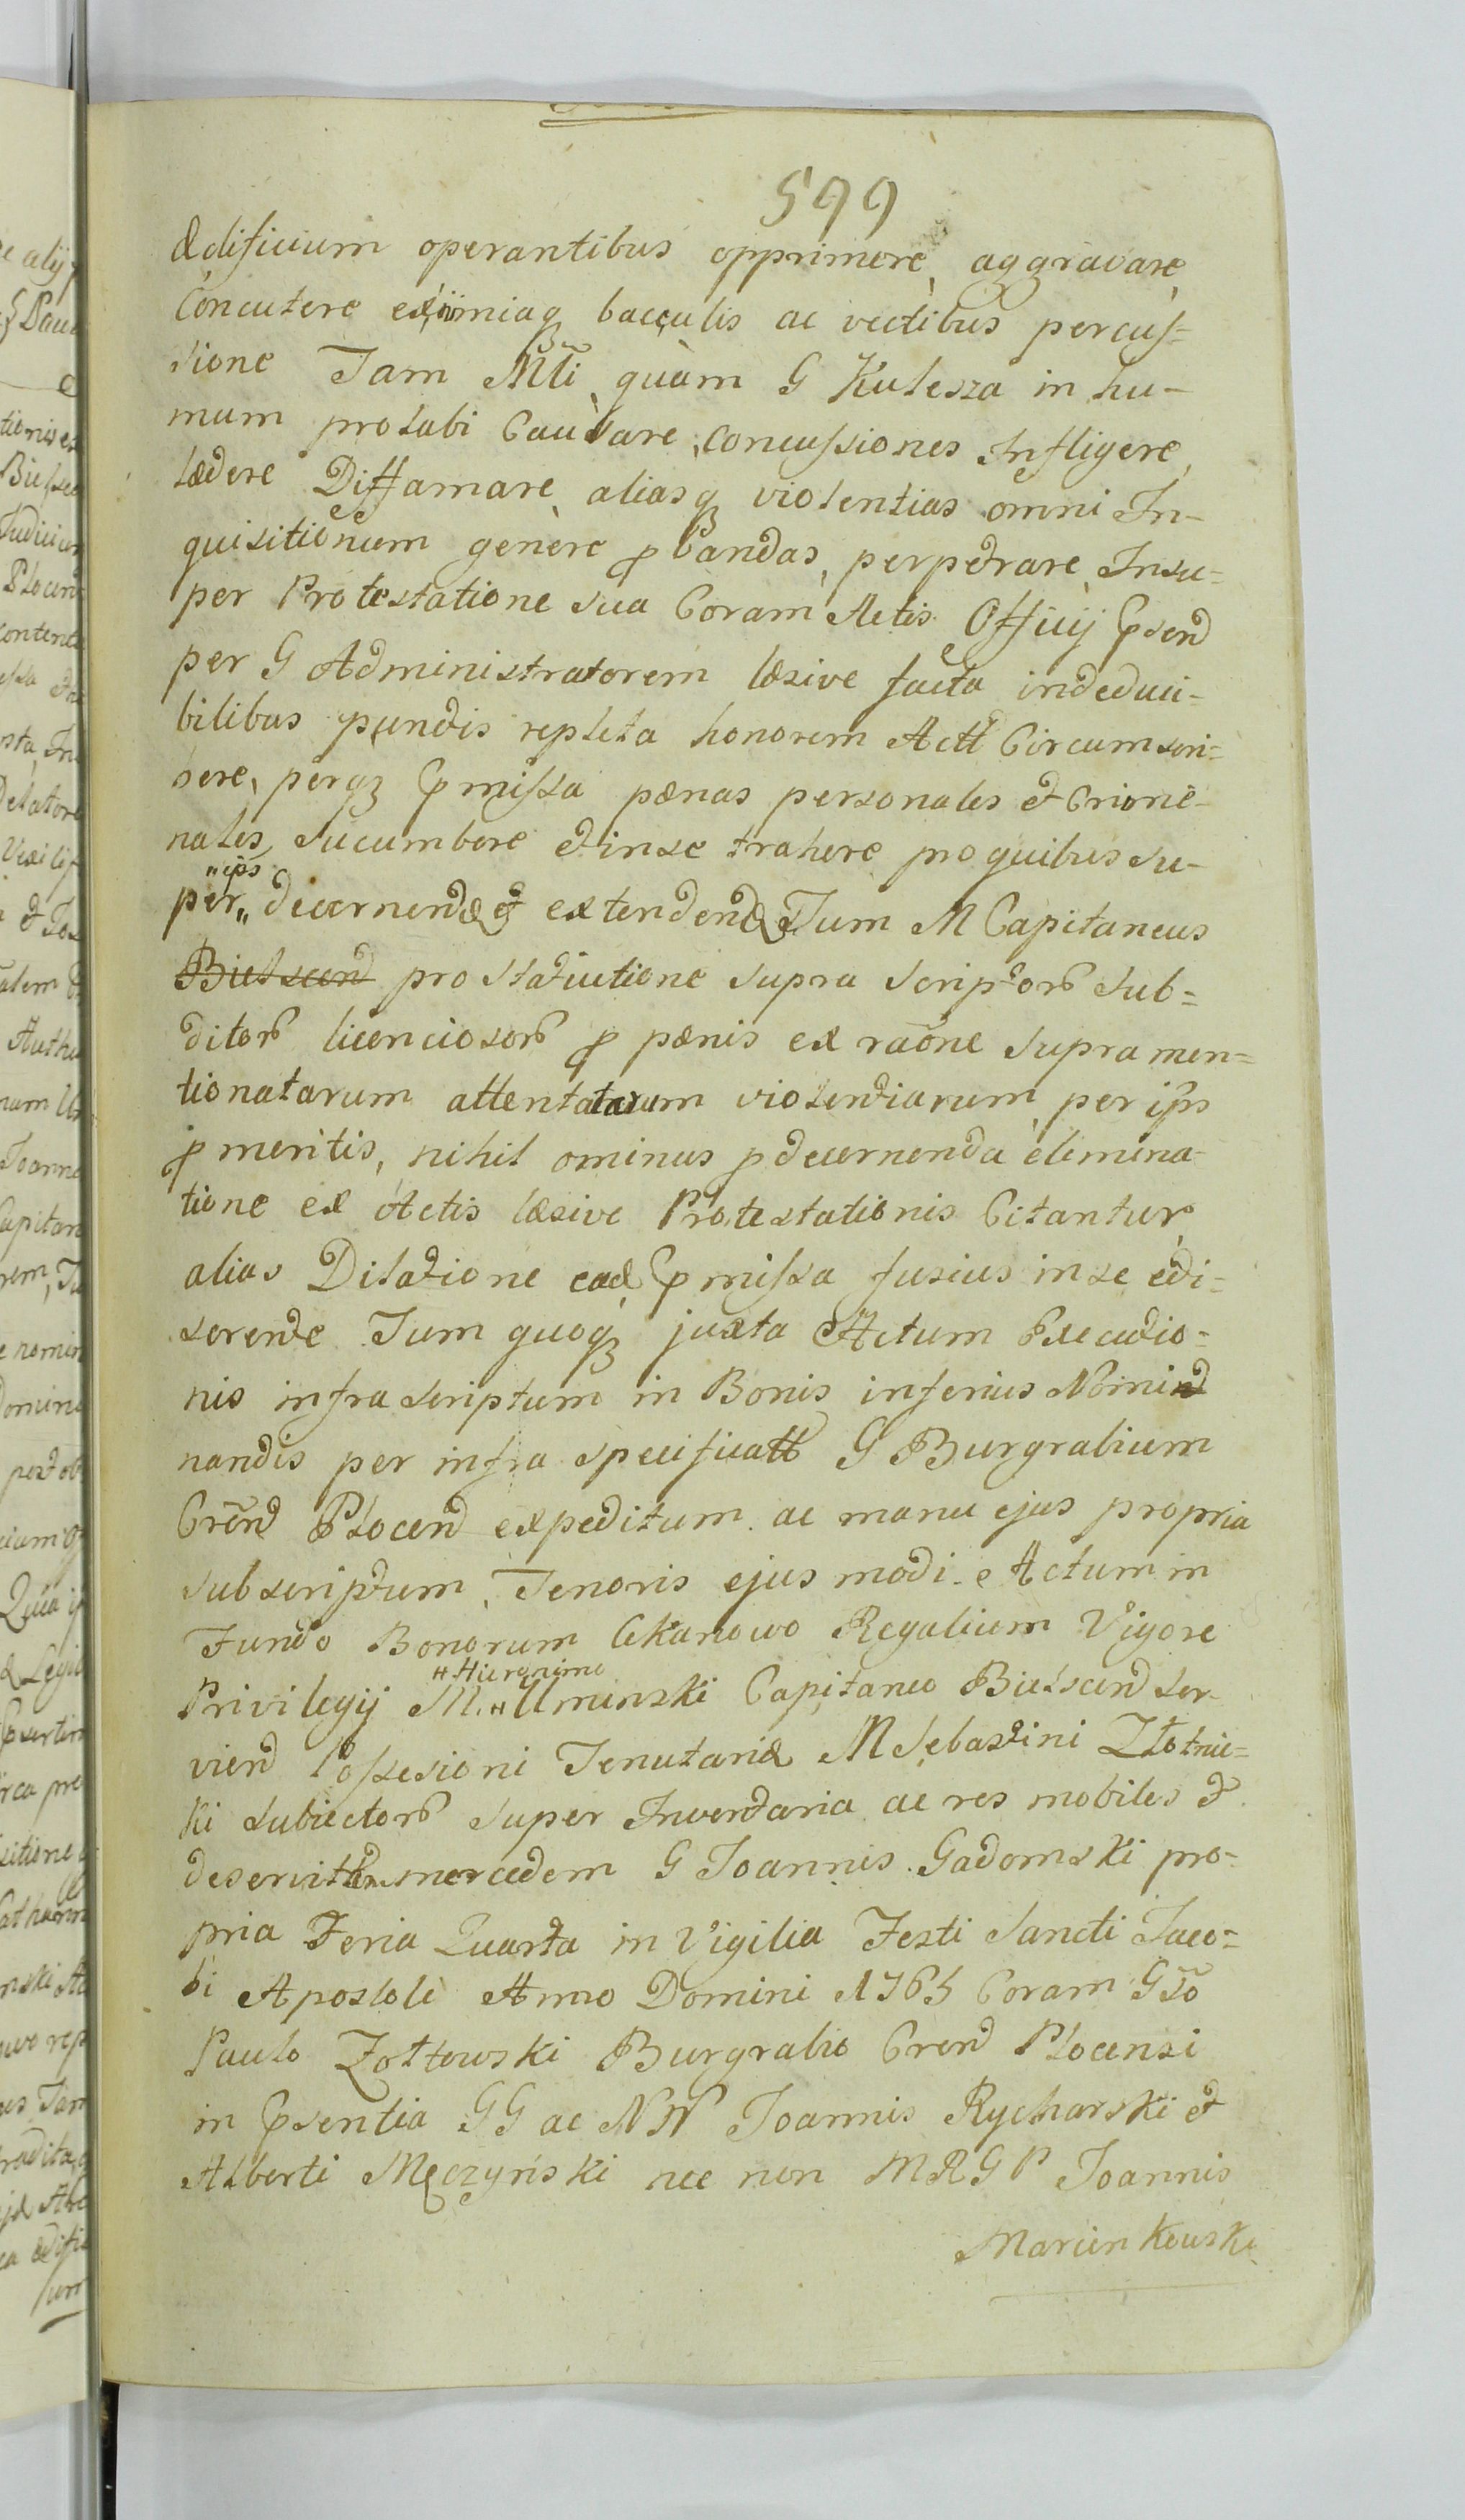 599
ædificium operantibus opprimere, aggravare,
Concutere eximiaq bacculis ac vectibus percus=
sione Tam Mfi, quam G Kulesza in hu-
mum prolabi Causare, concussiones Infligere,
lædere Diffamare, aliasq violentias omni In-
quisitionum genere p bandas, perpetrare, Insu=
per Protestatione sua Coram Actis Officij Psend
per G Administratorem læsive facta indeduci-
bilibus punctis repleta honorem Actt Circumscri=
bere, perq pmissa pænas personales et Crimi-
nales, sucumbere et in se trahere pro quibus su-
per „ ips „ decernend et extendend Tum M Capitaneus
Bielscend pro statiutione supra scriptor sub=
ditor licenciosor p pænis ex raone supra men=
tionatarum attentatarum violentiarum per ips
p meritis, nihil ominus p decernenda elimina-
tione ex Actis læsive Protestationis Citantur,
alias Dilatione ead pmissa fusius in se edi=
serente Tum quoq juxta Actum Executio=
nis infra scriptum in Bonis inferius Nomind
nandis per infra specificatt G Burgrabium
Crend Plocend expeditum ac manu ejus propria
subscriptum, Tenoris ejus modi. Actum in
Fundo Bonorum Cekanowo Regalium Vigore
Privilegij M. # Hieronimo # Uminski Capitaneo Bielscend ser-
viend Possesioni Tenutariæ M Sebastini Złotnic=
ki subiector super Inventaria ac res mobiles et
deservitt mercedem G Joannis Gadomski pro-
pria Feria Quarta in Vigilia Festi Sancti Jaco=
bi Apostoli Anno Domini 1765 Coram Gso
Paulo Zołtowski Burgrabio Crend Plocensi
in Psentia GG ac NN Joannis Rycharski et
Alberti Męczyński nec non MRGP Joannis
Marienkowski